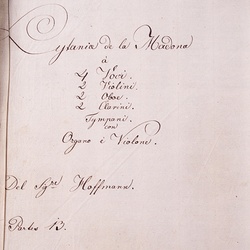 Lytania de la Madona
à
4 Voci.
2 Violini.
2 Oboe.
2 Clarini.
Tympani.
con
Organo è Violone.
Del Sg:re Hoffmann.
Partes 13.